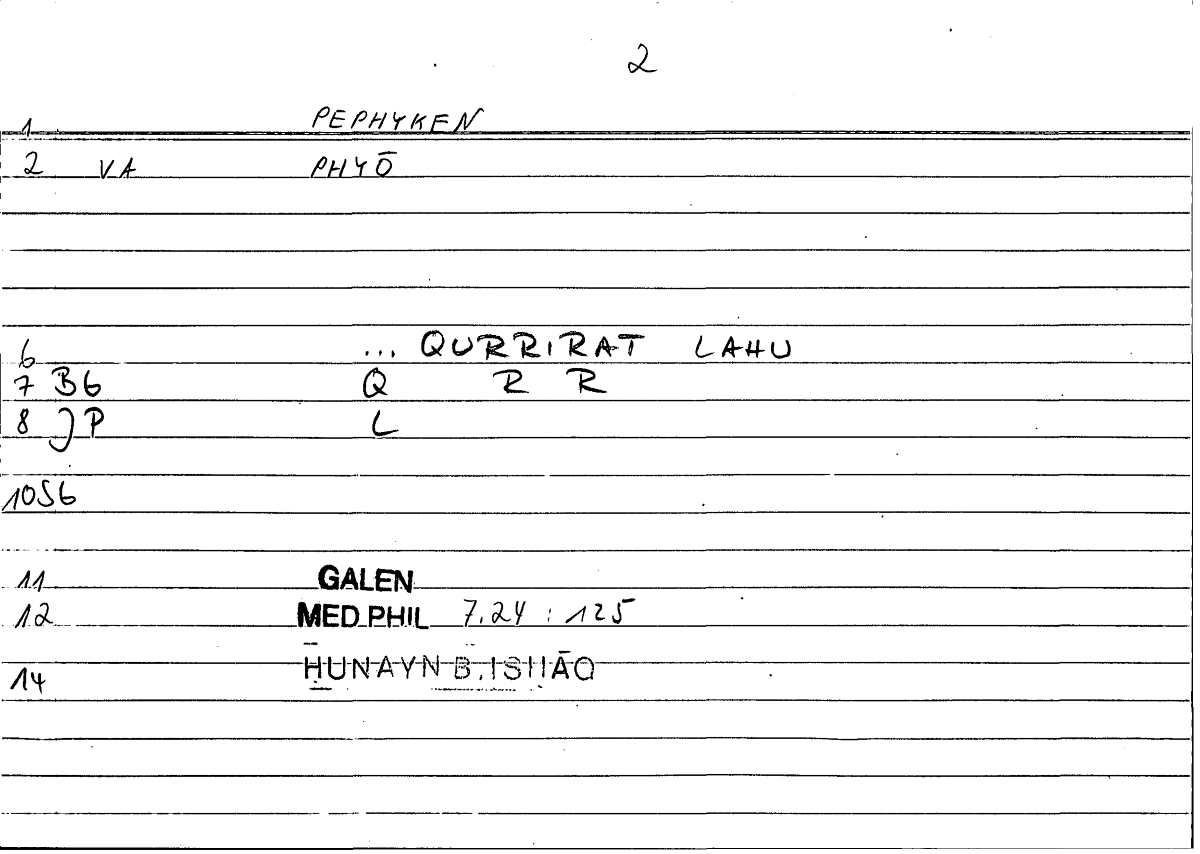 2
1 PEPHYKEN
2 VA PHYŌ
6 ... QURRIRAT LAHU
7 BG Q R R
8 JP L
10 SG
11 GALEN
12 MED PHIL 7.24 : 125
14 ḤUNAYN B. ISḤĀQ